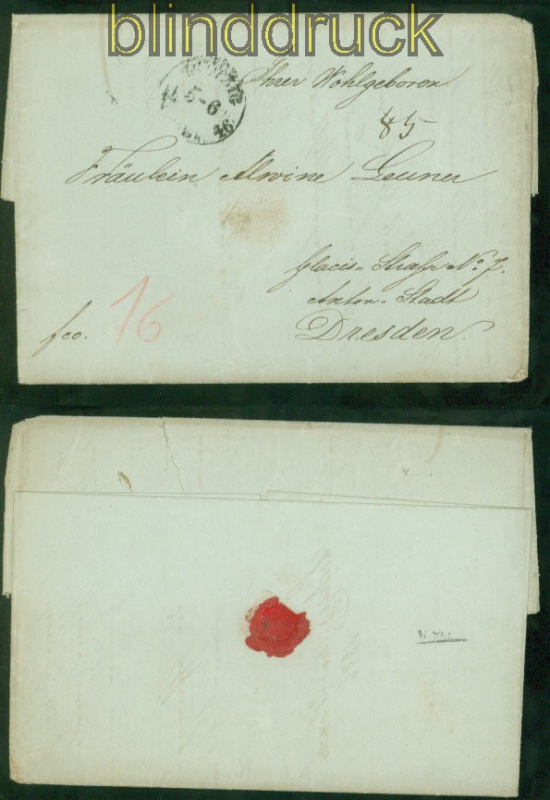 blinddruck
Ihrer Wohlgeboren
85
Fräulein Alwine Leuner
Glacis-Straße No. 7.
Anton-Stadt
Dresden.
fco. 16
46